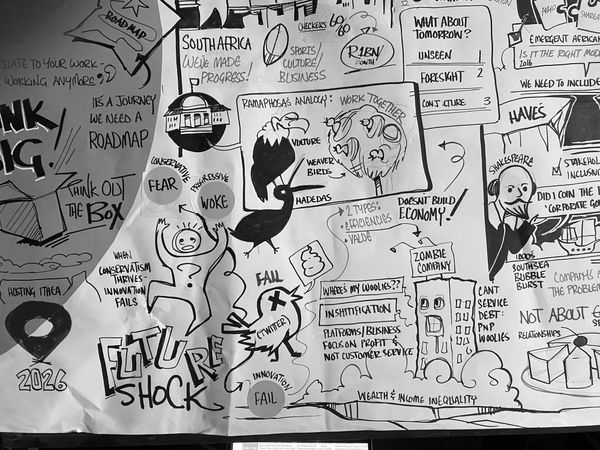 ROAD MAP
LATE TO YOUR WORK -
WORKING ANYMORE
IT'S A JOURNEY
WE NEED A
ROADMAP
NK
IG!
THINK OUT
THE BOX
HOSTING
2026
SOUTH AFRICA
WE'VE MADE
PROGRESS!
SPORTS/
CULTURE/
BUSINESS
CHECKERS 60/60
R1BN/
MONTH
RAMAPHOSA'S ANALOGY: WORK TOGETHER
VULTURE
WEAVER
BIRDS
HADEDAS
DOESN'T BUILD
ECONOMY!
WHAT ABOUT
TOMORROW?
UNSEEN 1
FORESIGHT 2
3
EMERGENT AFRICAN
IS IT THE RIGHT MOD
2016
WE NEED TO INCLUDE
HAVES
SHAKESPEARE
STAKEHOL
INCLUSI
DID I COIN THE
'CORPORATE GO
SOUTH SEA
BUBBLE
BURST
COMPANIES
THE PROBLEM
NOT ABOUT
RELATIONSHIPS
CONSERVATIVE
FEAR
PROGRESSIVE
WOKE
WHEN
CONSERVATISM
THRIVES -
INNOVATION
FAILS
FUTURE
SHOCK
FAIL
(TWITTER)
INNOVATION
FAIL
• 2 TYPES:
• EFFICIENCIES
• VALUE
ZOMBIE
COMPANY
WHERE'S MY WOOLIES??
INSHITIFICATION
PLATFORMS/BUSINESS
FOCUS ON PROFIT &
NOT CUSTOMER SERVICE
CAN'T
SERVICE
DEBT:
PNP
WOOLIES
WEALTH & INCOME INEQUALITY